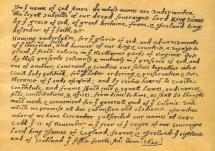 In ye name of god Amen. We whose names are underwriten,
the loyall subjects of our dread soveraigne Lord King James
by ye grace of god, of great Britaine, franc, & Ireland king,
defender of ye faith, &c
Haveing undertaken, for ye glorie of god, and advancemente
of ye christian faith and honour of our king & countrie, a voyage to
plant ye first colonie in ye Northerne parts of virginia. doe
by these presents solemnly & mutualy in ye presence of god, and
one of another, covenant, & combine our selves togeather into a
civill body politick; for our better ordering, & preservation & fur-
therance of ye ends aforesaid; and by vertue hearof to enacte,
constitute, and frame shuch just & equall lawes, ordinances,
Acts, constitutions, & offices, from time to time, as shall be thought
most meete & convenient for ye generall good of ye colonie: unto
which we promise all due submission and obedience. In witnes
wherof we have hereunder subscribed our names at cap-
Codd ye .11. of November, in ye year of ye raigne of our soveraigne
Lord king James of England, france, & Ireland ye eighteenth
and of Scotland ye fiftie fourth. Ano Dom 1620